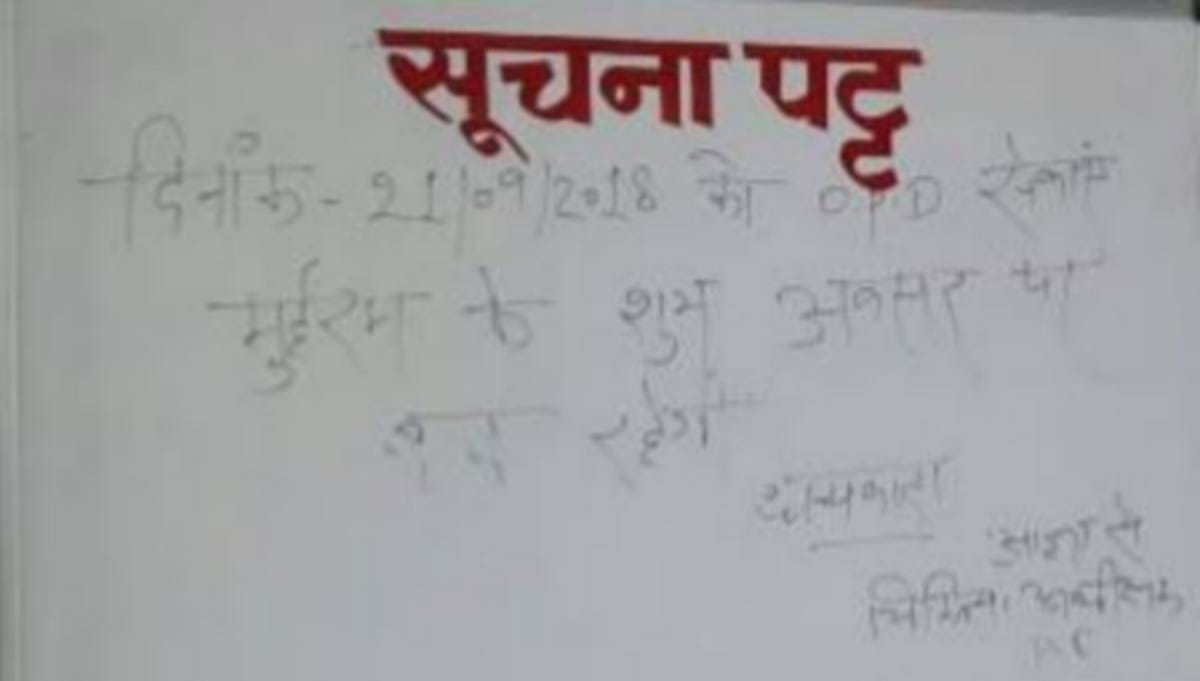 सूचना पट्ट
दिनांक - 21/09/2018 को OPD सेवाएं
मुर्हरम के शुभ अवसर पर
बन्द रहेगी
धन्यवाद
आज्ञा से
चिकित्सा अधीक्षक